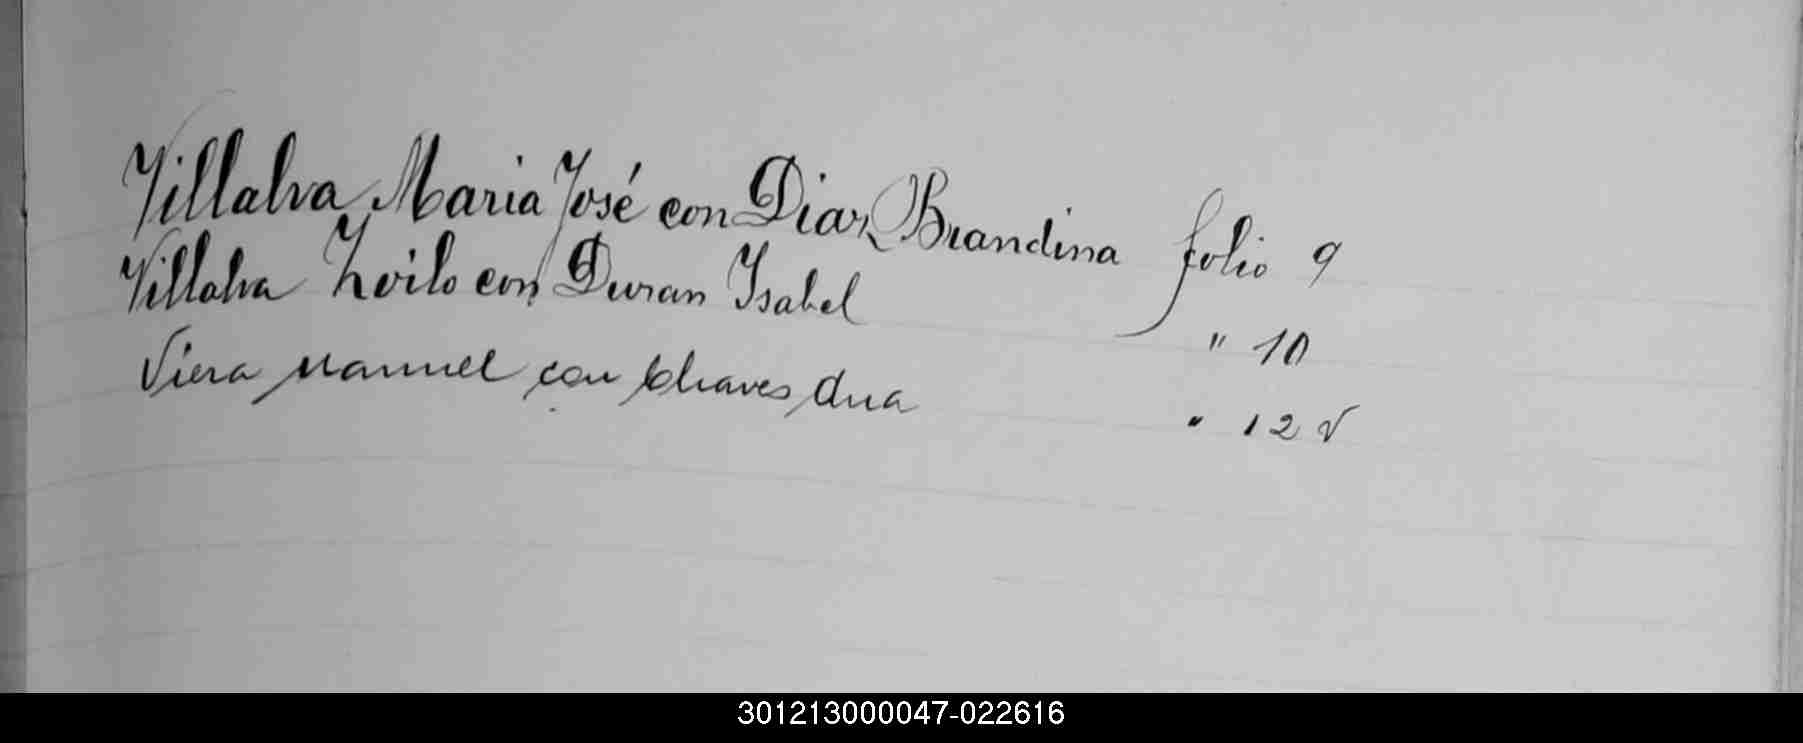 Villalva Maria José con Diaz Brandina folio 9
Villalva Zoilo con Duran Isabel " 10
Viera Manuel con Chaves Ana " 12 v
301213000047-022616